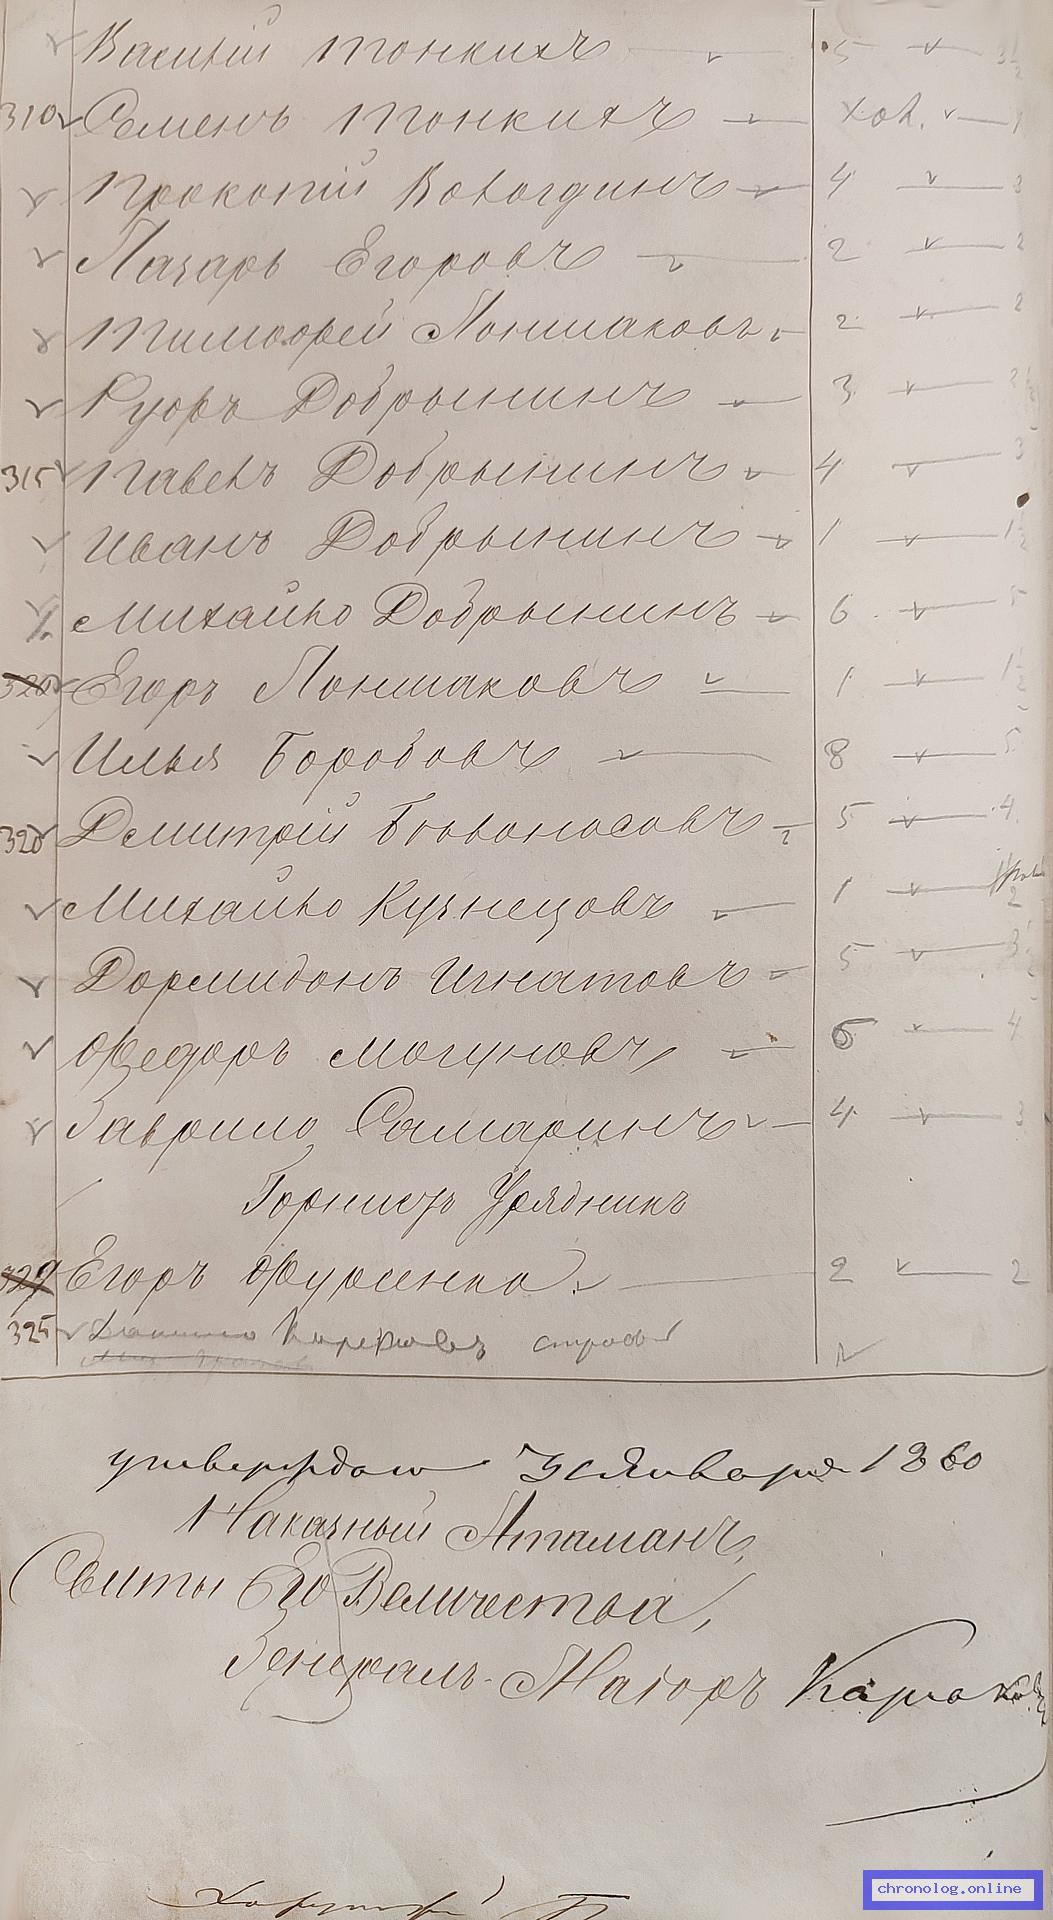 Василій Тонкихъ 5 3 1/2
310 Семенъ Тонкихъ хол. 1
Прокопій Вологдинъ 4 3
Лазарь Егоровъ 2 2
Тимофей Лоншаковъ 2 2
Ѳедоръ Добрынинъ 3 2
315 Павелъ Добрынинъ 4 3
Иванъ Добрынинъ 1 1 1/2
Михайло Добрынинъ 6 5
320 Егоръ Лоншаковъ 1 1 1/2
Илья Боробовъ 8 5
320 Дмитрій Бѣлоносовъ 5 4
Михайло Кузнецовъ 1 2
Дормидонъ Игнатовъ 5 3 1/2
Федоръ Могуновъ 6 4
Гаврило Самаринъ 4 3
Горнистъ Урядникъ
329 Егоръ Фурсенко 2 2
325
утверждаю Января 1860
Наказный Атаманъ,
Свиты Его Величества,
Генералъ-Маіоръ
chronolog.online